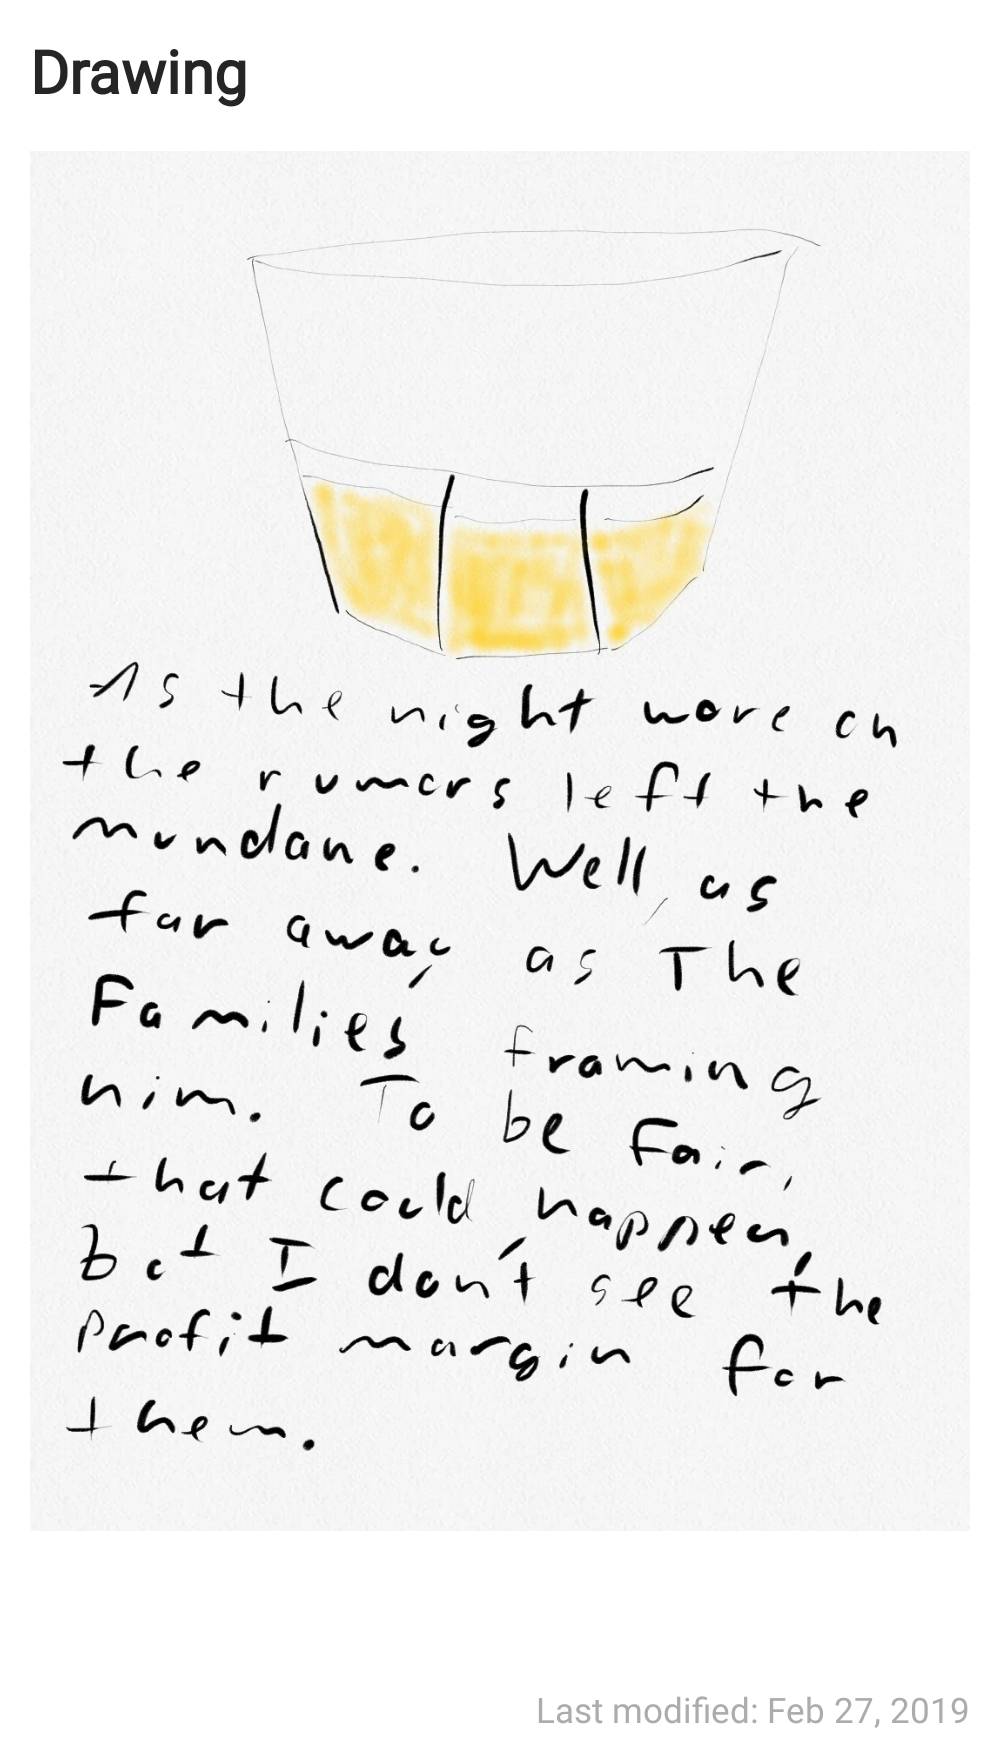 Drawing
As the night wore on
the rumors left the
mundane. Well, as
far away as The
Families' framing
him. To be fair,
that could happen,
but I don't see the
profit margin for
them.
Last modified: Feb 27, 2019